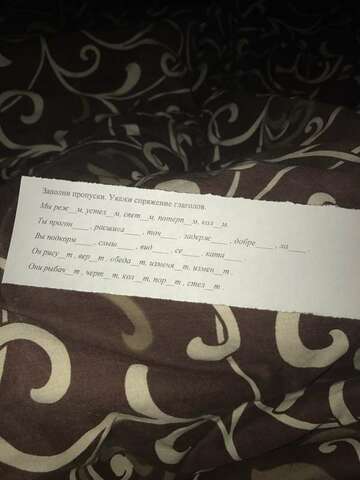 Заполни пропуски. Укажи спряжение глаголов.
Мы реж__м, устел__м, свет__м, потерп__м, кол__м.
Ты прогон____, расшива____, точ____, задерж____, добре____, ла____.
Вы подкорм____, слыш____, вид____, се____, ката____.
Он рису__т, вер__т, обеда__т, изменя__т, измен__т.
Они рыбач__т, черт__т, кол__т, пор__т, стел__т